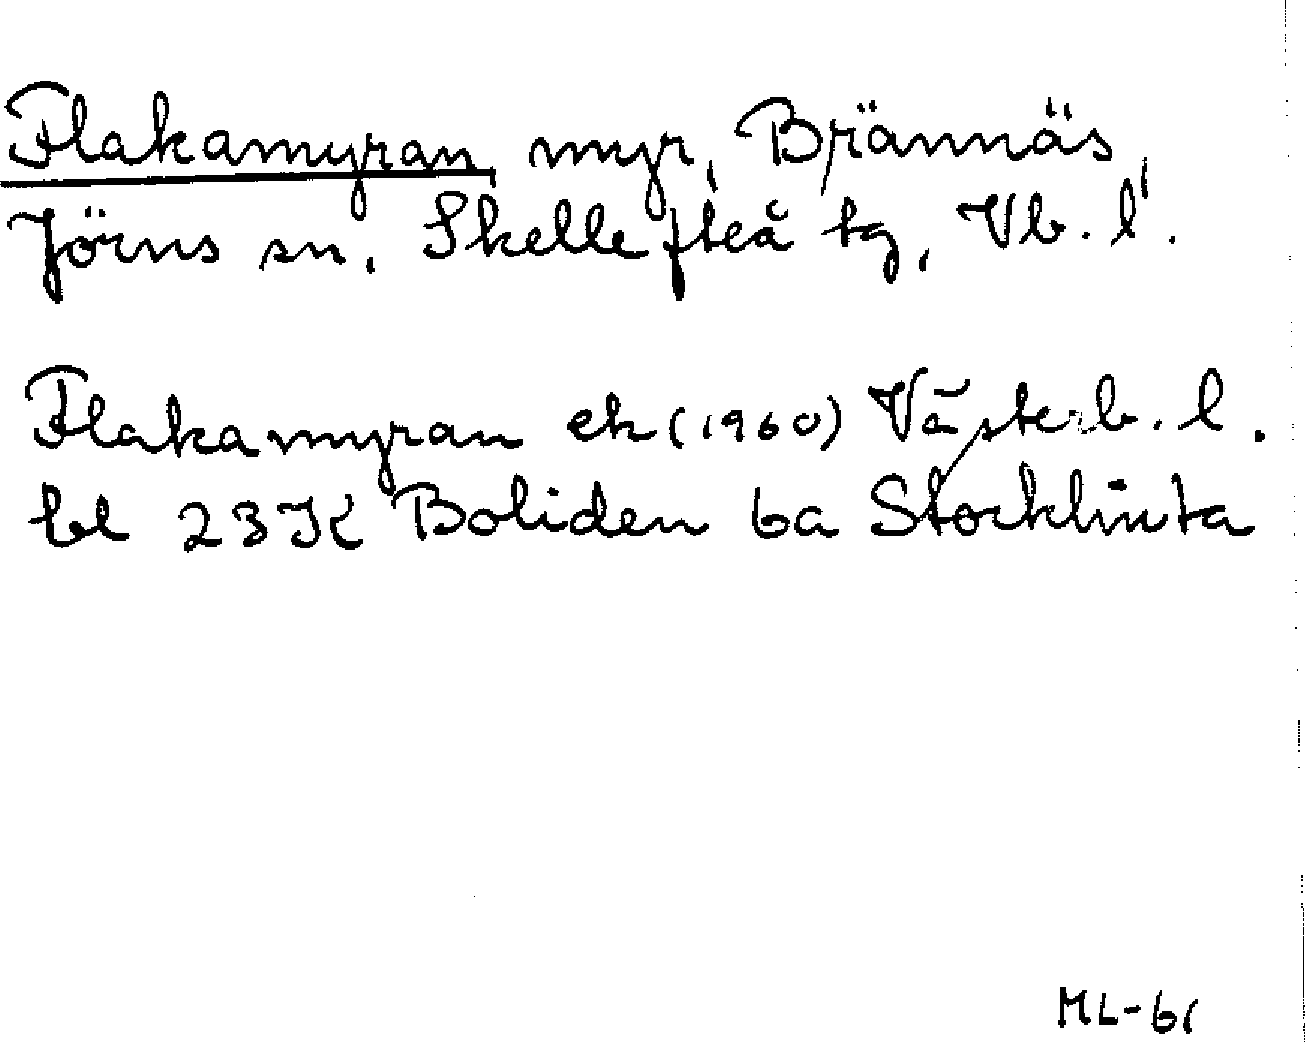 Flakamyran, myr, Brännäs,
Jörns sn, Skellefteå tg, Vb. l.
Flakamyran ek (1960) Västerb. l.
bl 23K Boliden 6a Storklinta
ML-61